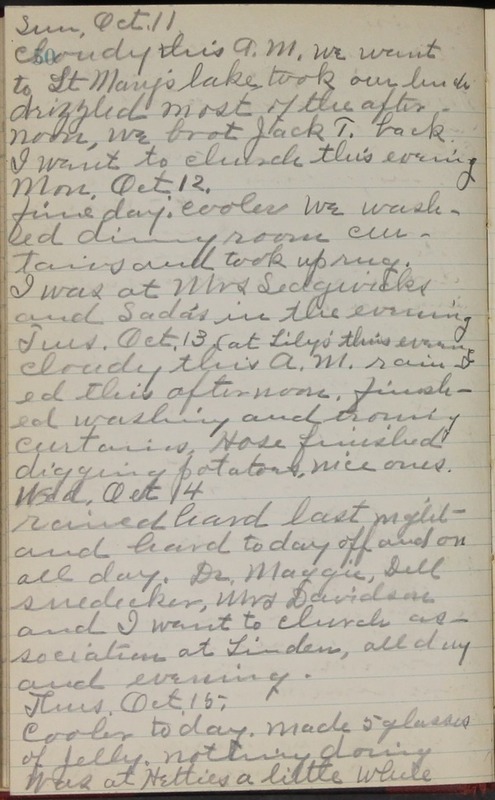 Sun, Oct. 11
Cloudy this A.M. we want
50
to St Mary's lake, took our lunch
drizzled most of the after-
noon, we brot Jack T. back
I want to church this evening
Mon, Oct 12.
fine day. cooler we wash-
ed dining room cur-
tains and took up rug.
I was at Mrs Sedgwicks
and Sada's in the evening
Tues. Oct. 13, (at Lily's this evening
cloudy this A.M. rain-
ed this afternoon, finish-
ed washing and ironing
curtains, Hose finished
digging potatoes, nice ones.
Wed, Oct 14
rained hard last night
and hard today off and on
all day. Dr. Maggie, Dell
Snedecker, Mrs Davidson
and I want to church as-
sociation at Linden, all day
and evening.
Thus. Oct, 15,
Cooler today. made 5 glasses
of jelly. nothing doing
Was at Hetties a little while